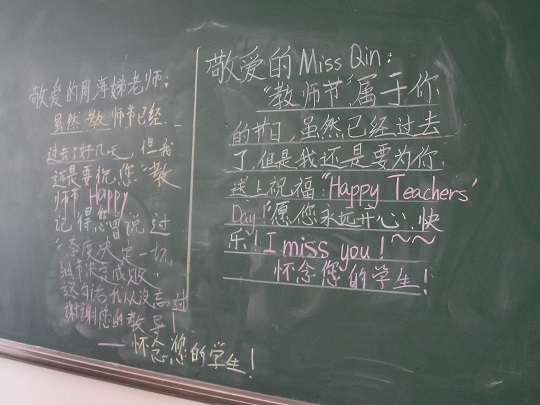 敬爱的周海娣老师：
虽然教师节已经
过去了好几天，但我
还是要祝您“教
师节 Happy
记得您曾说过
“态度决定一切，
细节决定成败”
这句话我从没忘过
谢谢您的教导！
——怀念您的学生！
敬爱的Miss Qin：
“教师节”属于你
的节日，虽然已经过去
了，但是我还是要为你
送上祝福“Happy Teachers'
Day！”愿您永远开心、快
乐！I miss you！～～
怀念您的学生！